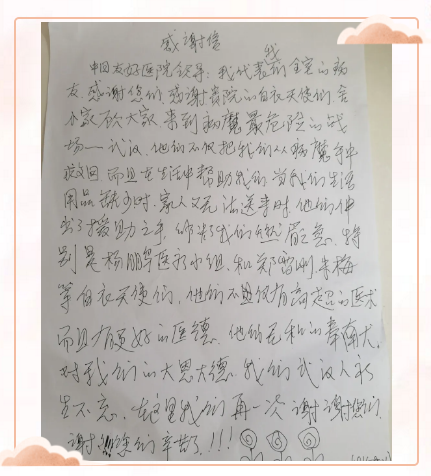 感谢信
我
中日友好医院领导：我代表们全宝的病
友感谢您们，感谢贵院的白衣天使们，舍
小家顾大家，来到病魔最危险的战
场——武汉，他们不仅把我们从病魔手中
救回，而且在生活中帮助我们，当我们生活
用品缺少时，家人又无法送来时，他们伸
出了援助之手，你我们，特
别是杨鹏医疗小组，和朱梅
等白衣天使们，他们不但仅有高超的医术
而且有良好的医德，他们无私的奉献大，
对我们的大恩大德，我们武汉人永
生不忘，在这里我们再一次谢谢您们，
谢谢您们辛苦了！！！